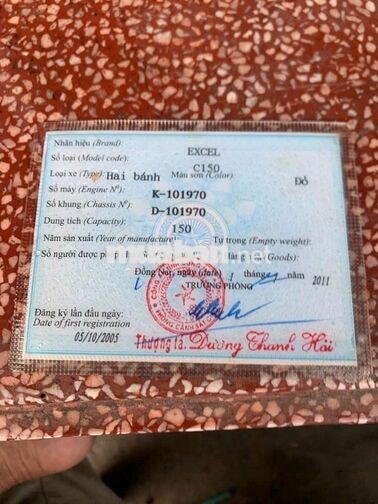 Nhãn hiệu (Brand): EXCEL
Số loại (Model code): C150
Loại xe (Type): Hai bánh Màu sơn (Color): Đỏ
Số máy (Engine Nº): K-101970
Số khung (Chassis Nº): D-101970
Dung tích (Capacity): 150
Năm sản xuất (Year of manufacture) Tự trọng (Empty weight):
Số người được (Goods):
Đồng Nai, ngày (date) 1 tháng năm 2011
TRƯỞNG PHÒNG
Đăng ký lần đầu ngày:
Date of first registration
05/10/2005
Thượng Tá. Dương Thanh Hải